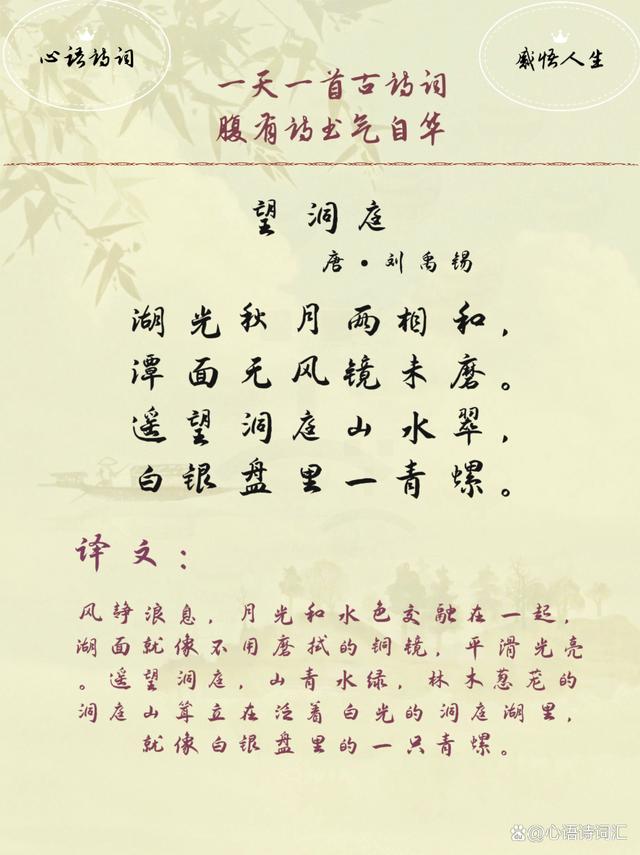 心语诗词
感悟人生
一天一首古诗词
腹有诗书气自华
望洞庭
唐·刘禹锡
湖光秋月两相和，
潭面无风镜未磨。
遥望洞庭山水翠，
白银盘里一青螺。
译文：
风静浪息，月光和水色交融在一起，
湖面就像不用磨拭的铜镜，平滑光亮
。遥望洞庭，山青水绿，林木葱茏的
洞庭山耸立在泛着白光的洞庭湖里，
就像白银盘里的一只青螺。
@心语诗词汇